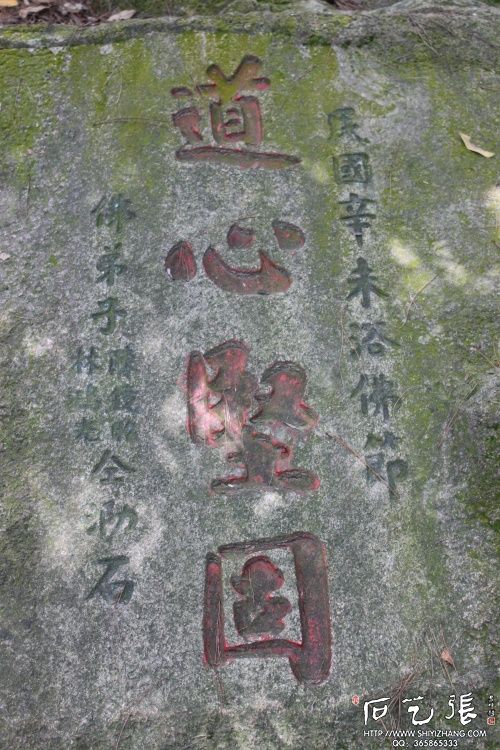 民國辛未浴佛節
道心堅固
佛弟子
林
仝泐石
石艺張
HTTP://WWW.SHIYIZHANG.COM
QQ: 365865333